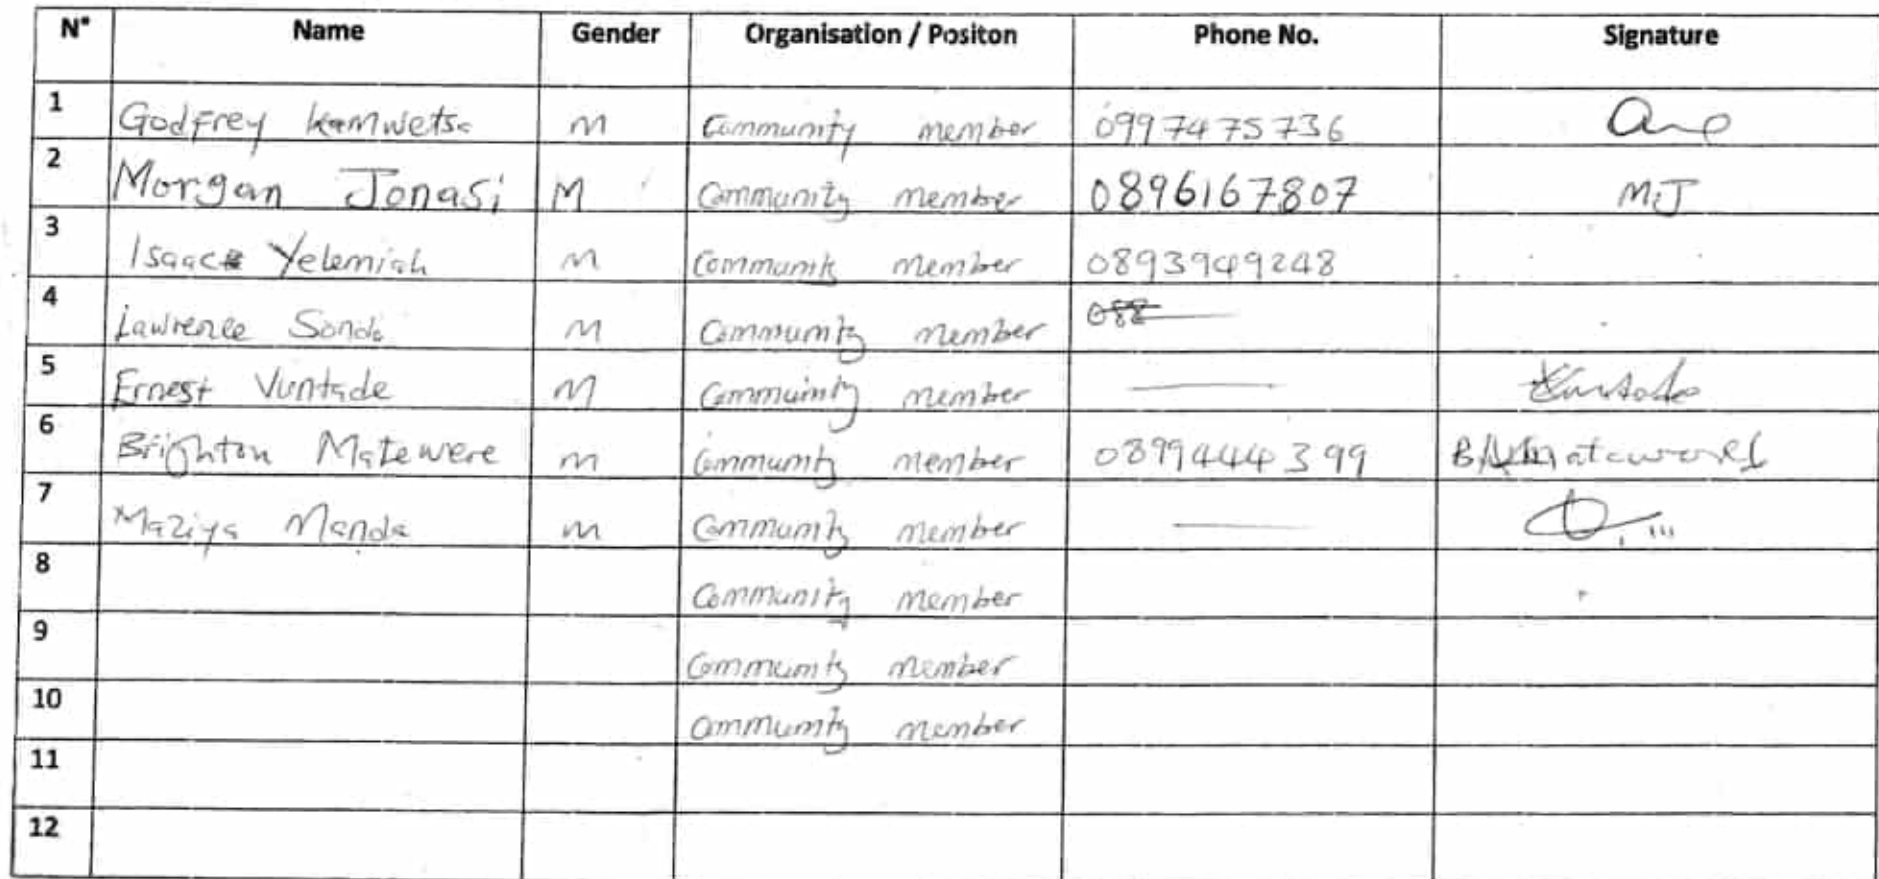 N° Name Gender Organisation / Positon Phone No. Signature
1 Godfrey Kamwetsa M Community member 0997475736
2 Morgan Jonasi M Community member 0896167807 MJ
3 Isaac Yelemiah M Community member 0893949248
4 Lawrence Sonda M Community member 088
5 Ernest Vuntade M Community member
6 Brighton Matewere M Community member 0899444399
7 Maziya Manda M Community member
8 Community member
9 Community member
10 Community member
11
12